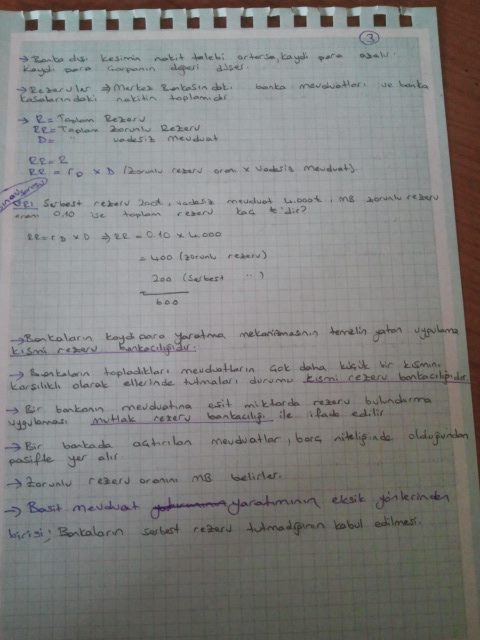 3
→ Banka dışı kesimin nakit talebi artarsa, kaydi para azalır.
Kaydi para çarpanın değeri düşer.
→ Rezervler ⇒ Merkez Bankasındaki banka mevduatları ve banka
kasalarındaki nakitin toplamıdır
→ R = Toplam Rezerv
RR = Toplam Zorunlu Rezerv
D = " vadesiz mevduat
RR = R
RR = rD x D (zorunlu rezerv oranı x vadesiz mevduat)
ÖR: Serbest rezerv 200t, vadesiz mevduat 4.000t, MB zorunlu rezerv
oranı 0.10 ise toplam rezerv kaç t'dir?
RR = rD x D ⇒ RR = 0.10 x 4.000
= 400 (zorunlu rezerv)
200 (Serbest ")
600
→ Bankaların kaydi para yaratma mekanizmasının temelin yatan uygulama
kısmi rezerv bankacılığıdır.
→ Bankaların topladıkları mevduatların çok daha küçük bir kısmını
karşılıklı olarak ellerinde tutmaları durumu kısmi rezerv bankacılığıdır
→ Bir bankanın mevduatına eşit miktarda rezerv bulundurma
uygulaması mutlak rezerv bankacılığı ile ifade edilir
→ Bir bankada açtırılan mevduatlar, borç niteliğinde olduğundan
pasifte yer alır
→ Zorunlu rezerv oranını MB belirler.
→ Basit mevduat yaratımının eksik yönlerinden
birisi; Bankaların serbest rezerv tutmadığının kabul edilmesi.